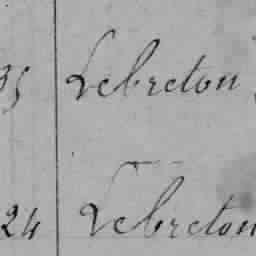 35 Lebreton
24 Lebreton